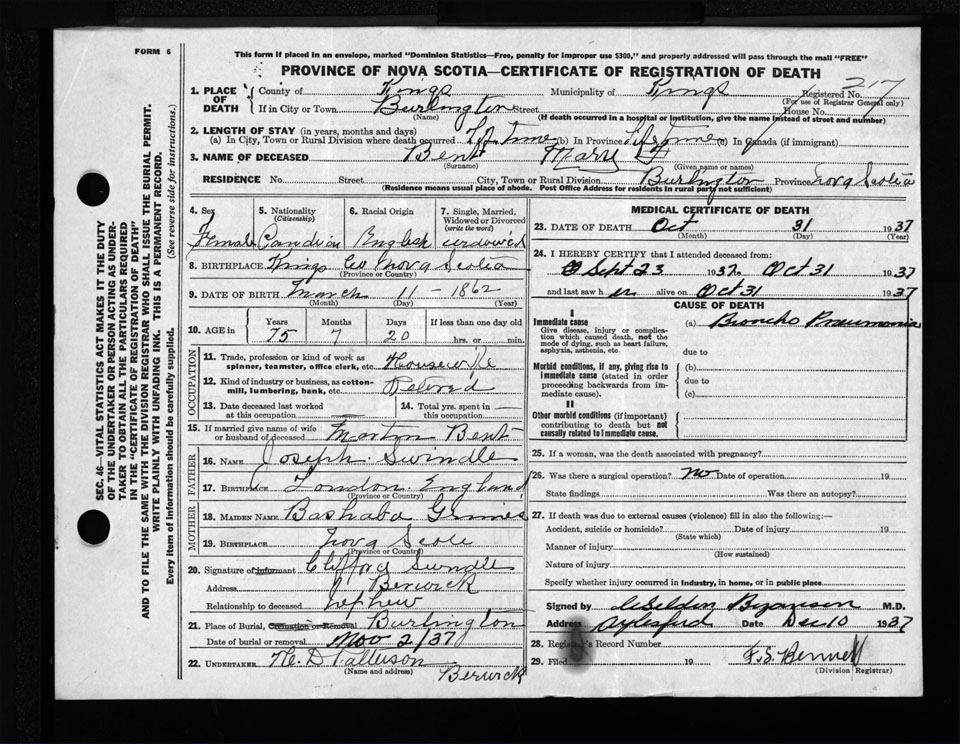 FORM 6
This form if placed in an envelope, marked "Dominion Statistics—Free, penalty for improper use $300," and properly addressed will pass through the mail "FREE"
PROVINCE OF NOVA SCOTIA—CERTIFICATE OF REGISTRATION OF DEATH
1. PLACE OF DEATH County of Kings Municipality of Kings Registered No. 217
(For use of Registrar General only)
If in City or Town Burlington Street House No.
(Name) (If death occurred in a hospital or institution, give the name instead of street and number)
2. LENGTH OF STAY (in years, months and days)
(a) In City, Town or Rural Division where death occurred Life Time (b) In Province Life Time (c) In Canada (if immigrant)
3. NAME OF DECEASED Bent Mary
(Surname) (Given name or names)
RESIDENCE No. Street City, Town or Rural Division Burlington Province Nova Scotia
(Residence means usual place of abode. Post Office Address for residents in rural parts not sufficient)
4. Sex Female
5. Nationality (Citizenship) Candian
6. Racial Origin English
7. Single, Married, Widowed or Divorced (write the word) widowed
8. BIRTHPLACE Kings Co Nova Scotia
(Province or Country)
9. DATE OF BIRTH March 11 - 1862
(Month) (Day) (Year)
10. AGE in Years 75 Months 7 Days 20 If less than one day hrs. or min.
OCCUPATION
11. Trade, profession or kind of work as spinner, teamster, office clerk, etc. Housewife
12. Kind of industry or business, as cotton-mill, lumbering, bank, etc. Retired
13. Date deceased last worked at this occupation —
14. Total yrs. spent in this occupation —
15. If married give name of wife or husband of deceased Martin Bent
FATHER
16. NAME Joseph Swindle
17. BIRTHPLACE London England
(Province or Country)
MOTHER
18. MAIDEN NAME Bashaba Grimes
19. BIRTHPLACE Nova Scotia
(Province or Country)
20. Signature of informant Clifford Swindle
Address Berwick
Relationship to deceased nephew
21. Place of Burial, Cremation or Removal Burlington
Date of burial or removal Nov 2/37
22. UNDERTAKER H. D Patterson
(Name and address) Berwick
MEDICAL CERTIFICATE OF DEATH
23. DATE OF DEATH Oct 31 1937
(Month) (Day) (Year)
24. I HEREBY CERTIFY that I attended deceased from:
Sept 23 1937 to Oct 31 1937
and last saw her alive on Oct 31 1937
CAUSE OF DEATH
I
Immediate cause (a) Broncho Pneumonia
Give disease, injury or complication which caused death, not the mode of dying, such as heart failure, asphyxia, asthenia, etc. due to
Morbid conditions, if any, giving rise to immediate cause (stated in order proceeding backwards from immediate cause). (b)
due to
(c)
II
Other morbid conditions (if important) contributing to death but not causally related to immediate cause.
25. If a woman, was the death associated with pregnancy?
26. Was there a surgical operation? No Date of operation 19
State findings Was there an autopsy?
27. If death was due to external causes (violence) fill in also the following:—
Accident, suicide or homicide? Date of injury 19
(State which)
Manner of injury
(How sustained)
Nature of injury
Specify whether injury occurred in industry, in home, or in public place
Signed by M.D.
Address Aylesford Date Dec 10 1937
28. Registrar's Record Number
29. Filed 19 F. S. Bennett
(Division Registrar)
SEC. 46—VITAL STATISTICS ACT MAKES IT THE DUTY
OF THE UNDERTAKER OR PERSON ACTING AS UNDER-
TAKER TO OBTAIN ALL THE PARTICULARS REQUIRED
IN THE "CERTIFICATE OF REGISTRATION OF DEATH"
AND TO FILE THE SAME WITH THE DIVISION REGISTRAR WHO SHALL ISSUE THE BURIAL PERMIT.
WRITE PLAINLY WITH UNFADING INK. THIS IS A PERMANENT RECORD.
Every item of information should be carefully supplied. (See reverse side for instructions.)